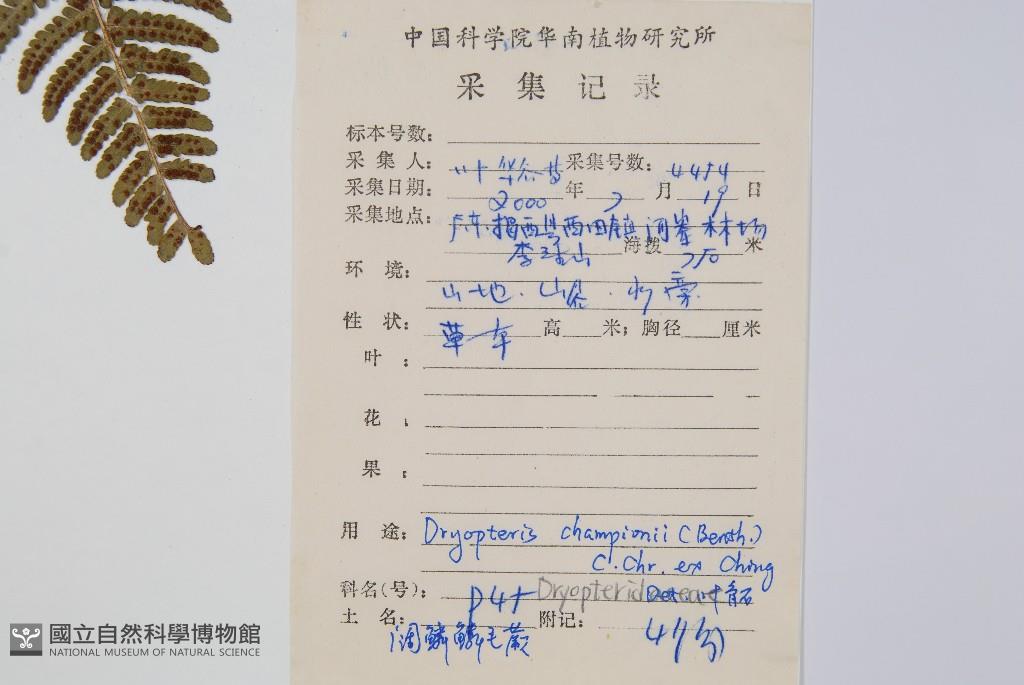 中国科学院华南植物研究所
采集记录
标本号数：
采集人： 叶华谷 采集号数： 4494
采集日期： 2000 年 7 月 19 日
采集地点： 广东揭西县西田镇河輋林场
李望山 海拔 750 米
环境： 山地. 山谷. 水旁
性状： 草本 高 米； 胸径 厘米
叶：
花：
果：
用途： Dryopteris championii (Benth.)
C. Chr. ex Ching
科名(号)： P45 Dryopteridaceae Det. 叶育石
土名： 阔鳞鳞毛蕨 附记： 4份
國立自然科學博物館
NATIONAL MUSEUM OF NATURAL SCIENCE